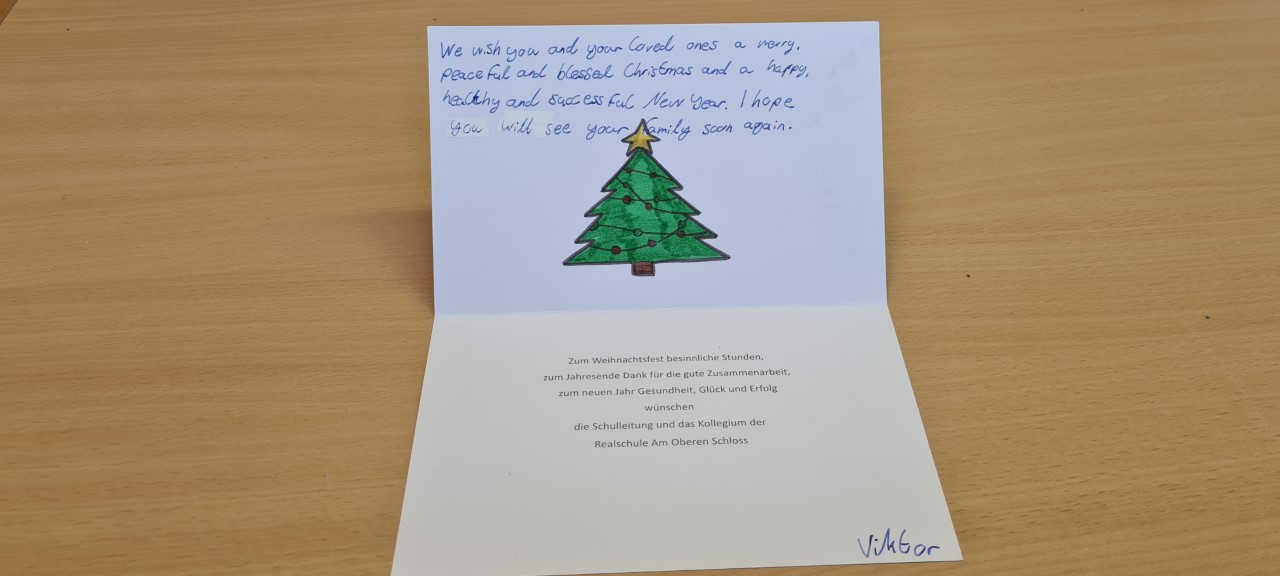 We wish you and your loved ones a merry,
peaceful and blessed Christmas and a happy,
healthy and successful New Year. I hope
you will see your family soon again.
Zum Weihnachtsfest besinnliche Stunden,
zum Jahresende Dank für die gute Zusammenarbeit,
zum neuen Jahr Gesundheit, Glück und Erfolg
wünschen
die Schulleitung und das Kollegium der
Realschule Am Oberen Schloss
Viktor